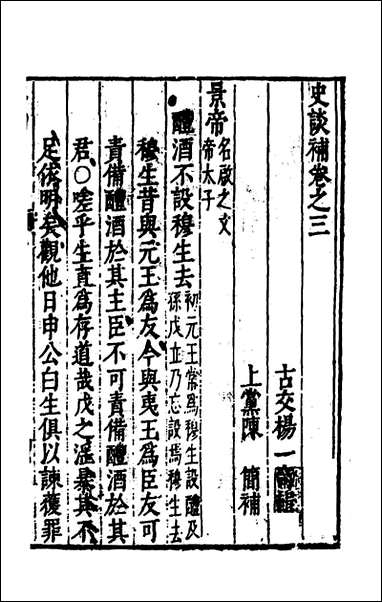 史談補卷之三
古交楊一輯
上黨陳 簡補
景帝 名啟之文帝太子
醴酒不設穆生去 初元王常為穆生設醴及孫戊立乃忘設焉穆生去
穆生昔與元王為友今與夷王為臣友可
責備醴酒於其主臣不可責備醴酒於其
君○嗟乎生直為存道哉戊之淫暴其不
足依明矣觀他日申公白生俱以諫獲罪